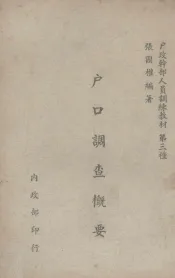 戶政幹部人員訓練教材 第三種
張國權編著
戶口調查概要
內政部印行